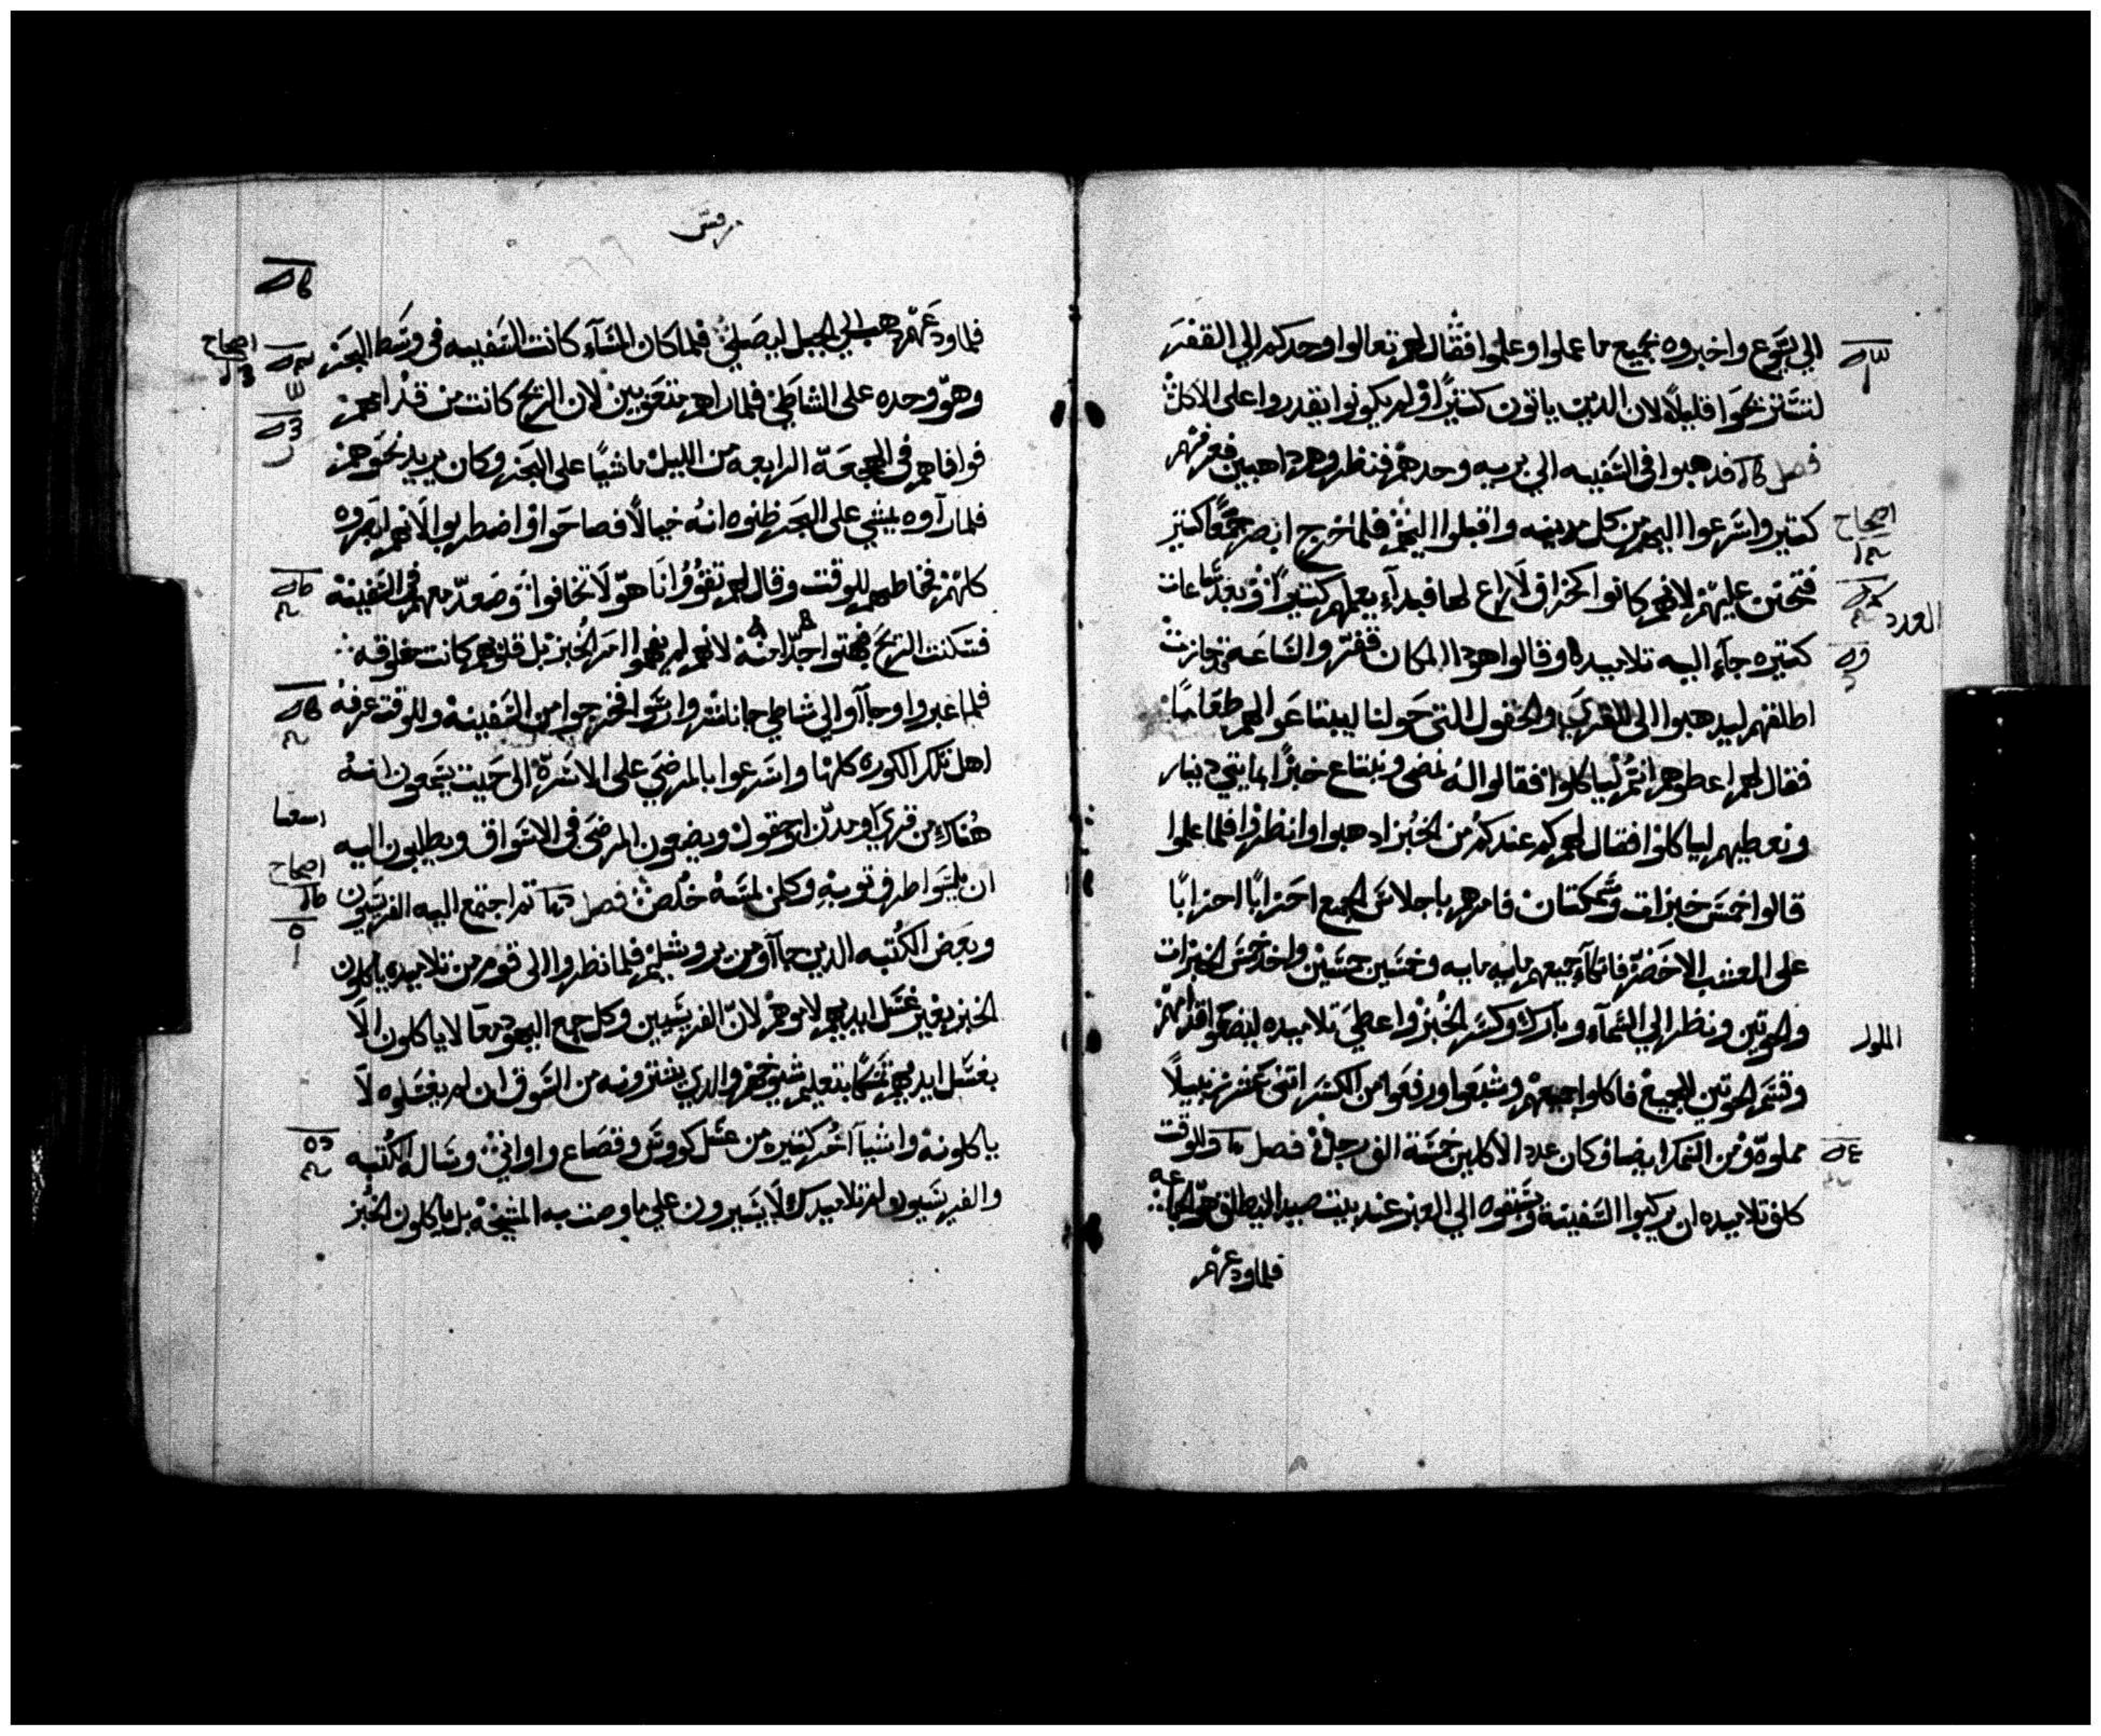 الي يسوع واخبروه بجميع ما عملوا وعلموا فقال لهم تعالوا وحدكم الي القفر
لنستريحوا قليلاً لان الدين ياتون كتيرًا ولم يكونوا يقدروا على الاكل
فصل فدهبوا في السفينه الي بريه وحدهم فنظروهم داهبين فعرفهم
كتير واسرعوا اليهم من كل مدينه واقبلوا اليه فلما خرج ابصر جمعًا كتير
فتحنن عليهم لانهم كانوا كخراف لا راع لها فبدآء يعلمهم كتيرًا وبعد ساعات
كتيره جآء اليه تلاميده وقالوا هدا المكان قفر والساعه قد جازت
اطلقهم ليدهبوا الى القري والحقول التي حولنا ليبتاعوا لهم طعامًا
فقال لهم اعطوهم انتم لياكلوا فقالوا له نمضى ونبتاع خبزًا بمايتي دينار
ونعطيهم لياكلوا فقال لهم كم عندكم من الخبز ادهبوا وانظروا فلما علموا
قالوا خمس خبزات وسمكتان فامرهم باجلاس الجميع احزابًا احزابًا
على العشب الاخضر فاتكآء جميعهم مايه مايه وخمسين خمسين واخد خمس الخبزات
والحوتين ونظر الي السمآء وبارك وكسر الخبز واعطي تلاميده ليضعوا قدامهم
وقسم الحوتين للجميع فاكلوا جميعهم وشبعوا ورفعوا من الكسر اتنى عشر زنبيلاً
مملوه ومن السمك ايضا وكان عدد الاكلين خمسة الف رجل فصل وللوقت
كلف تلاميده ان يركبوا السفينة ويسبقوه الي العبر عند بيت صيدا ليطلق هو الجماعه
فلما ودعهم
اصحاح
العدد
مرقس
فلما ودعهم دهب الي الجبل ليصلي فلما كان المسآء كانت السفينه في وسط البحر
وهو وحده على الشاطي فلما راهم متعوبين لان الريح كانت من قدامهم
فوافاهم في الهجعة الرابعه من الليل ماشيًا على البحر وكان يريد نحوهم
فلما رآوه يمشي على البحر ظنوه انه خيالاً فصاحوا واضطربوا لانهم ابصروه
كلهم فخاطبهم للوقت وقال لهم تقووا انا هو لا تخافوا وصعد معهم في السفينة
فسكنت الريح فبهتوا جدًا منه لانهم لم يفهموا امر الخبز بل قلوبهم كانت مغلوقه
فلما عبروا وجآآوا الي شاطي جاناشر وارسوا فخرجوا من السفينة وللوقت عرفه
اهل تلك الكوره كلها واسرعوا بالمرضي على الاسرة الى حيت يسمعون انه
هناك من قري او مدن او حقول ويضعون المرضى في الاسواق ويطلبون اليه
ان يلمسوا طرف توبه وكلمن لمسه خلص فصل تم اجتمع اليه الفريسيون
وبعض الكتبه الدين جآآو من يروشليم فلما نظروا الى قوم من تلاميده ياكلون
الخبز بغير غسل ايديهم لاموهم لان الفريسيين وكل جمع اليهود معا لا ياكلون الا
بغسل ايديهم تمسكًا بتعليم شيوخهم والدي يشترونه من السوق ان لم يغسلوه لا
ياكلونه واشيآ اخر كتيره من غسل كووس وقصاع واواني وساله الكتبه
والفريسيون لم تلاميدك لا يسيرون علي ما وصت به المشيخه بل ياكلون الخبز
اصحاح
اصحاح